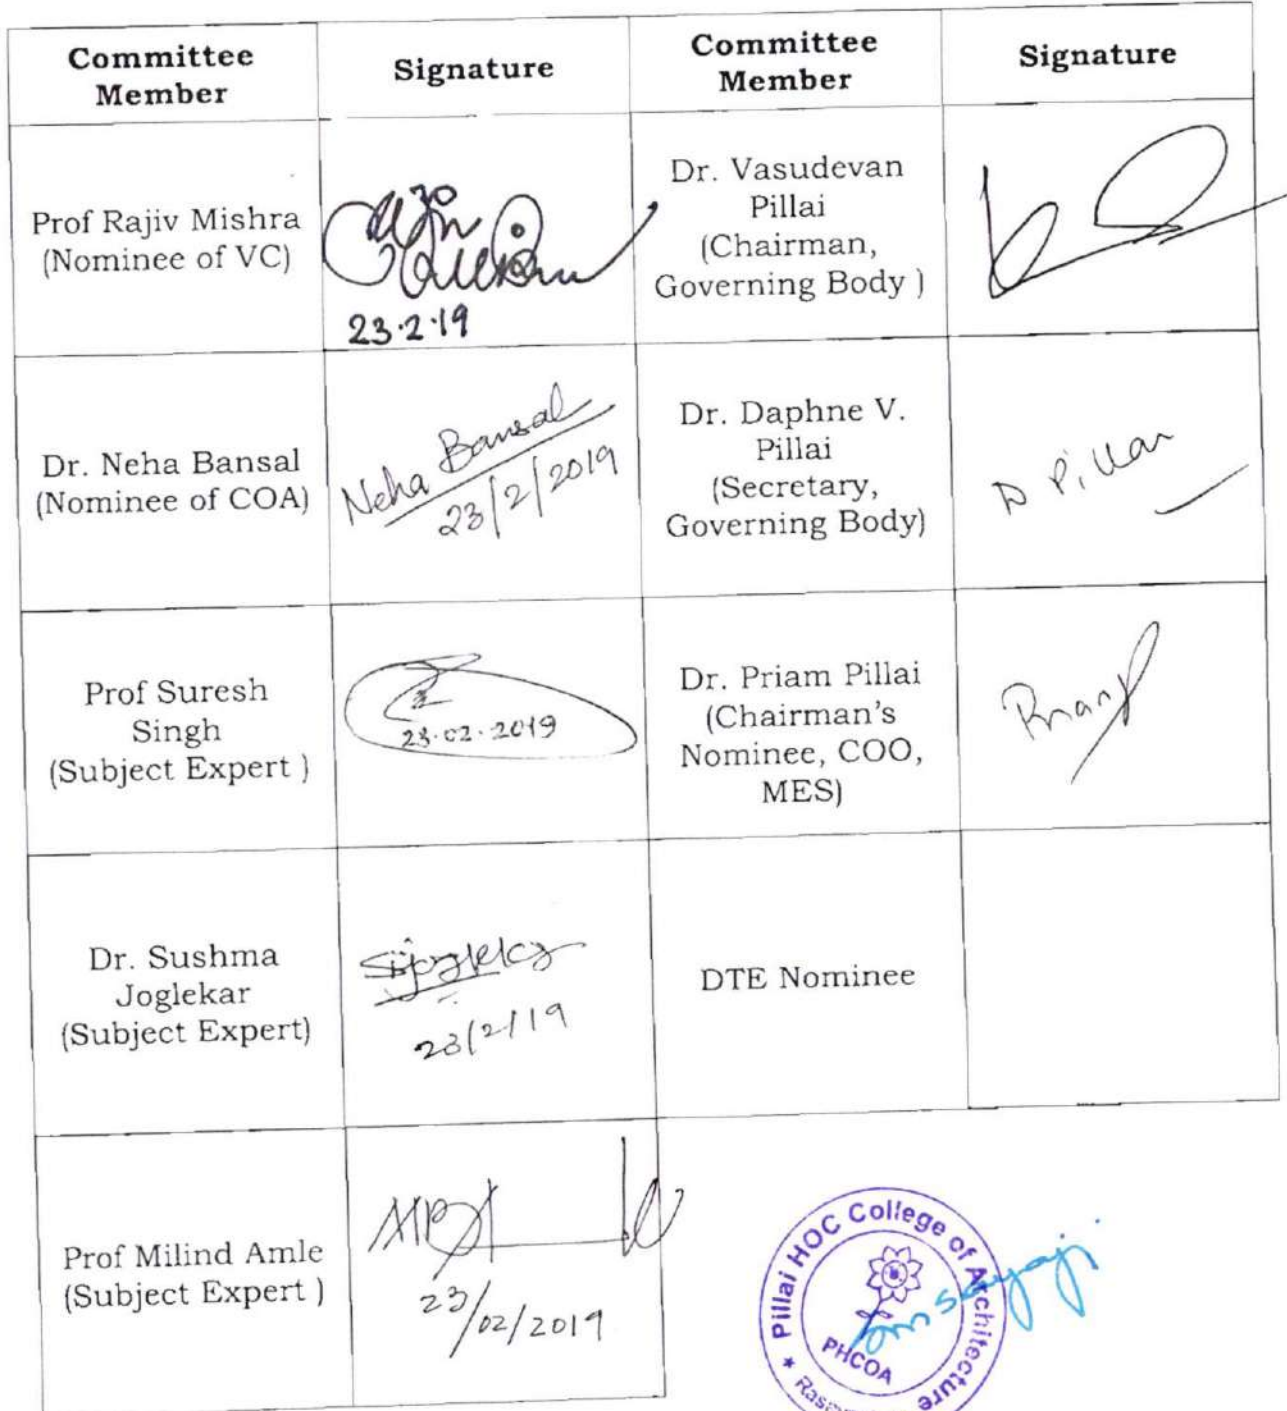 Committee
Member
Signature
Committee
Member
Signature
Prof Rajiv Mishra
(Nominee of VC)
23.2.19
Dr. Vasudevan
Pillai
(Chairman,
Governing Body )
Dr. Neha Bansal
(Nominee of COA)
Neha Bansal
23/2/2019
Dr. Daphne V.
Pillai
(Secretary,
Governing Body)
D Pillai
Prof Suresh
Singh
(Subject Expert )
23.02.2019
Dr. Priam Pillai
(Chairman's
Nominee, COO,
MES)
Dr. Sushma
Joglekar
(Subject Expert)
23/2/19
DTE Nominee
Prof Milind Amle
(Subject Expert )
23/02/2019
Pillai HOC College of Architecture
PHCOA